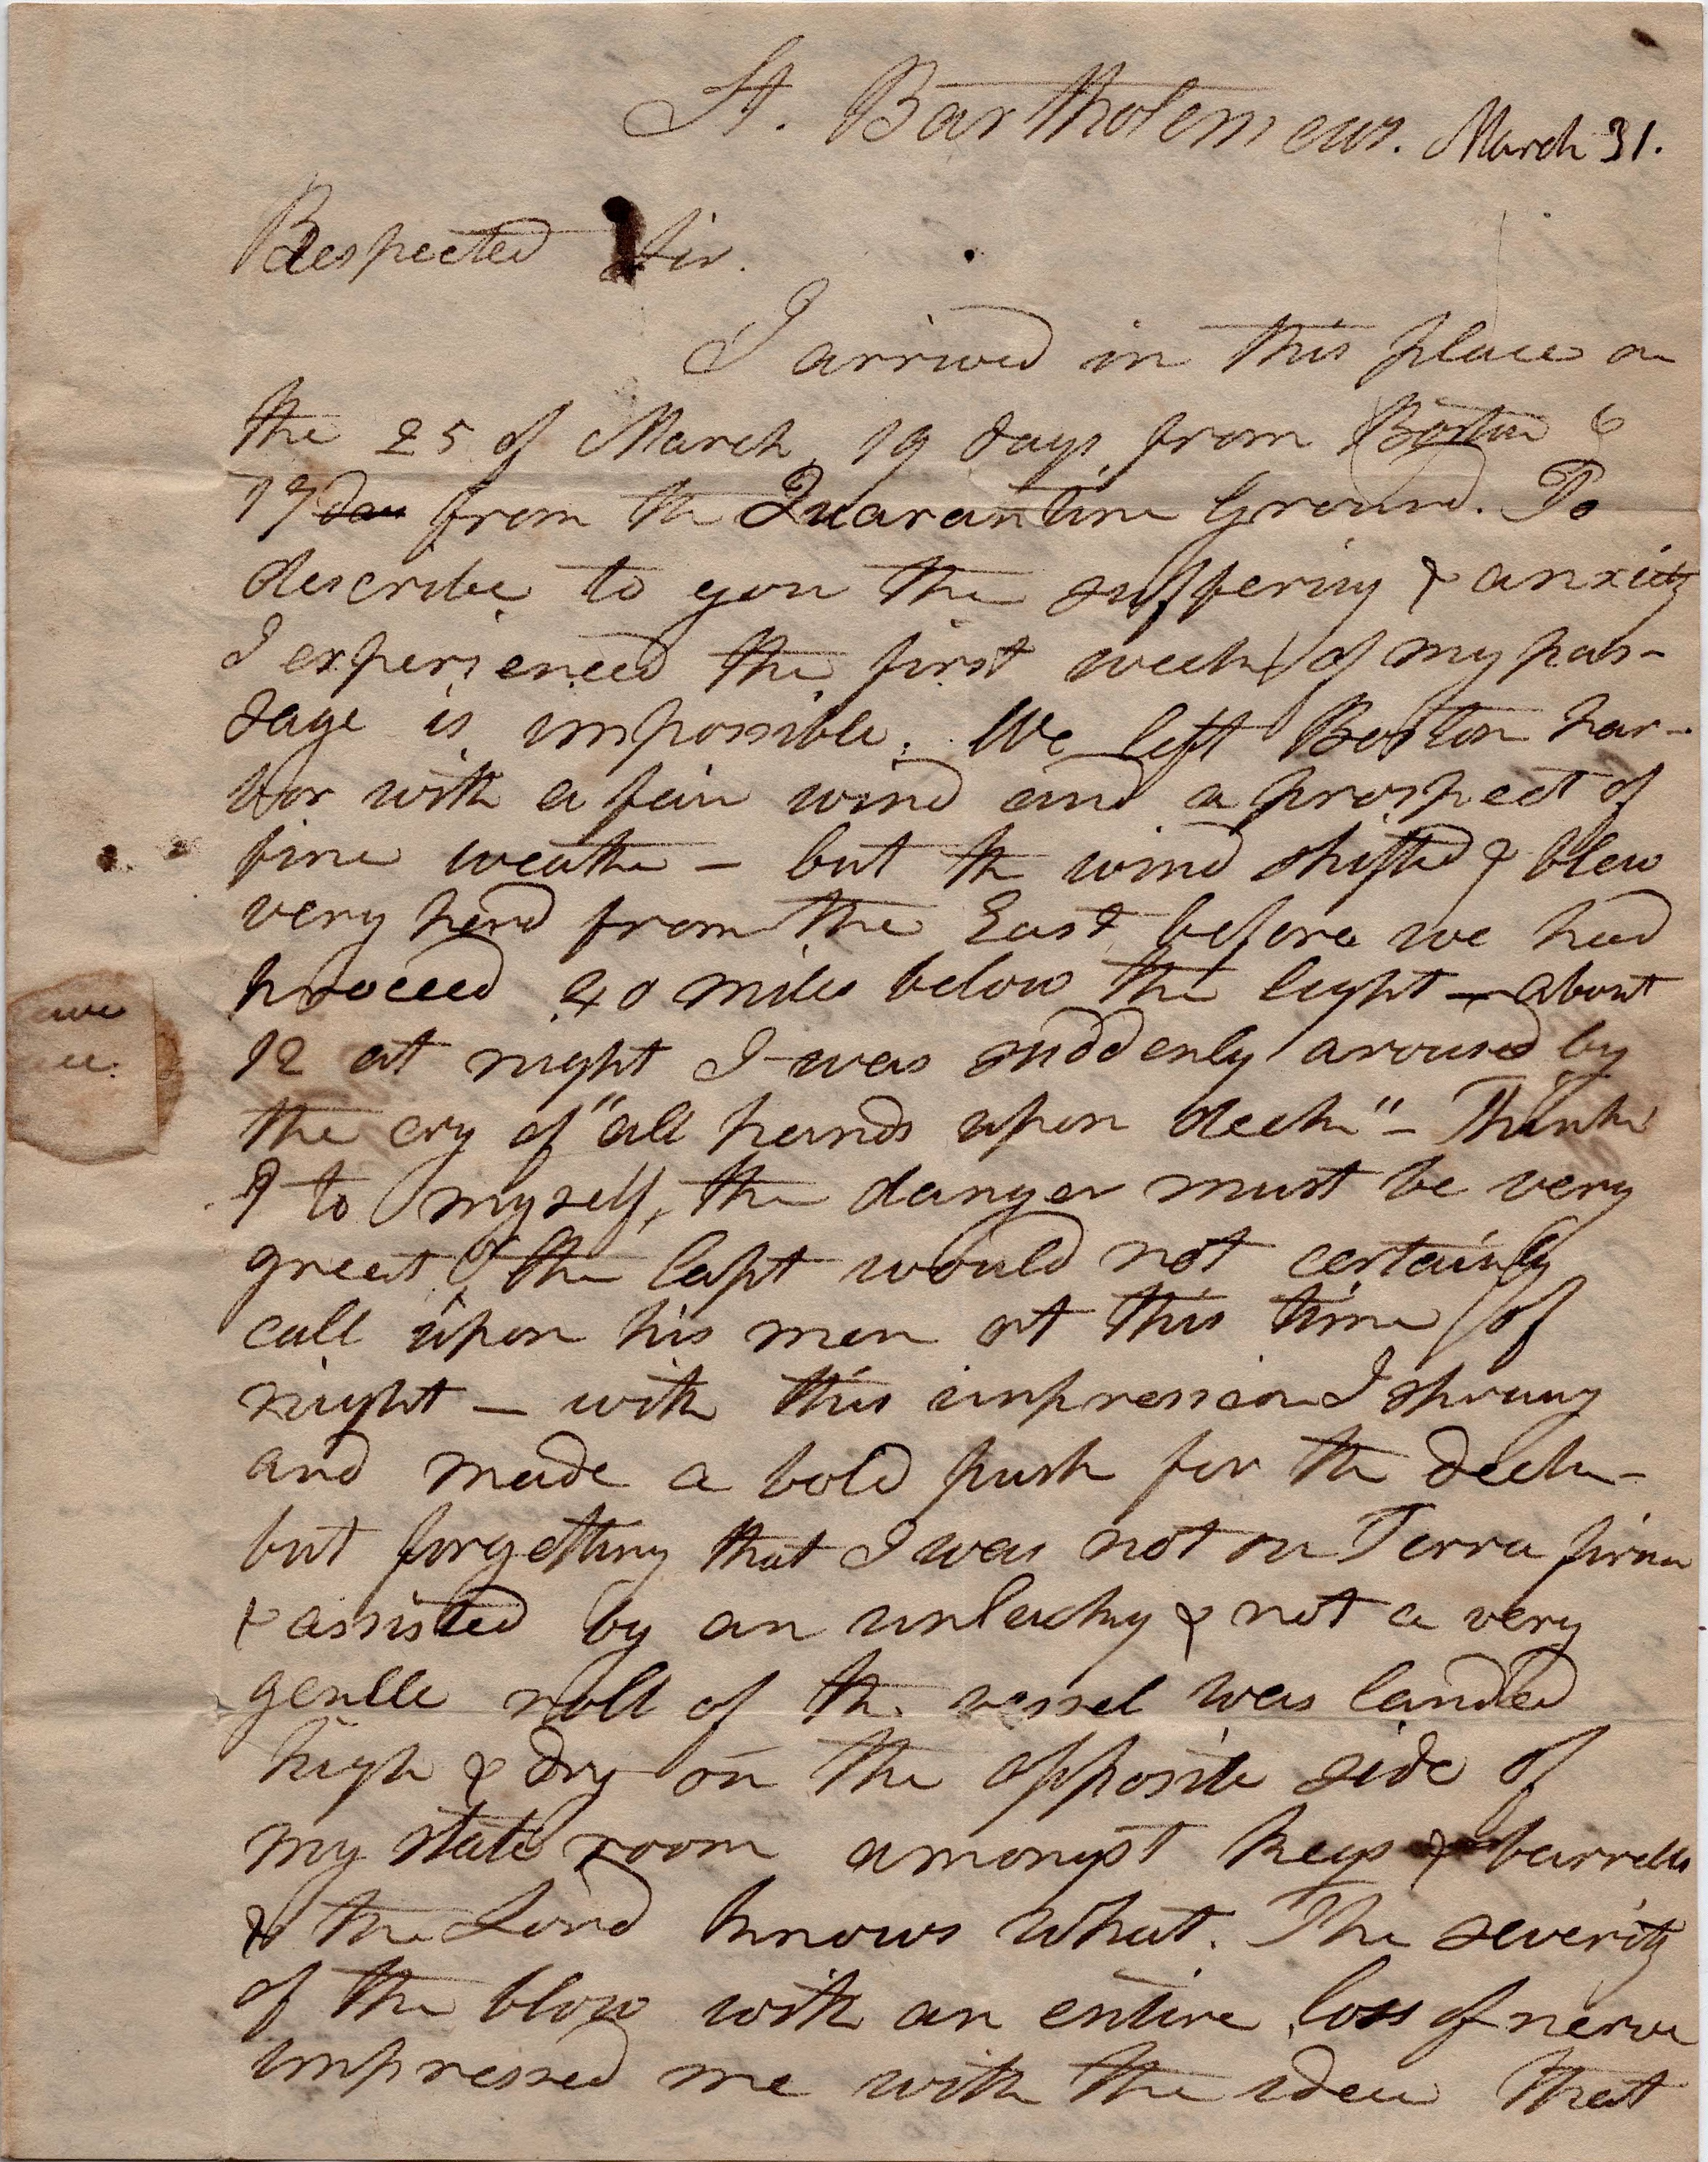 St. Bartholemews. March 31.
Respected Sir.
I arrived in this place on
the 25 of March, 19 days from Boston &
17 from the Quarantine Ground. To
describe to you the suffering & anxiety
I experienced the first week of my pas-
sage is impossible. We left Boston har-
bor with a fair wind and a prospect of
fine weather - but the wind shifted & blew
very hard from the East before we had
proceed 40 miles below the light - about
12 at night I was suddenly aroused by
the cry of "all hands upon deck" - Thinks
I to myself, the danger must be very
great or the Capt would not certainly
call upon his men at this time of
night - with this impression I sprung
and made a bold push for the deck -
but forgetting that I was not on Terra firma
& assisted by an unlucky & not a very
gentle roll of the vessel was landed
high & dry on the opposite side of
my state room amongst kegs & barrels
& the Lord knows what. The severity
of the blow with an entire loss of nerve
impressed me with the idea that